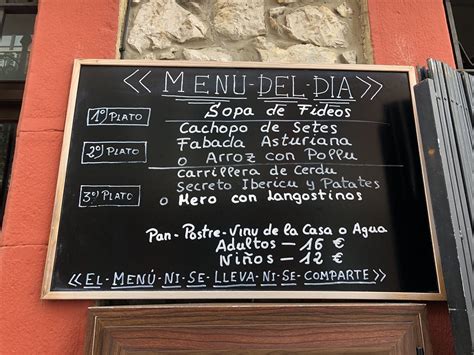 << MENU-DEL-DIA >>
1º PLATO
Sopa de Fideos
Cachopo de Setes
2º) PLATO
Fabada Asturiana
o Arroz con Pollu
3º PLATO
Carrillera de Cerdu
Secreto Ibericu y Patates
o Mero con langostinos
Pan-Postre-Vinu de la Casa o Agua
Adultos - 16 €
Niños - 12 €
<< EL-MENÚ-NI-SE-LLEVA-NI-SE-COMPARTE >>